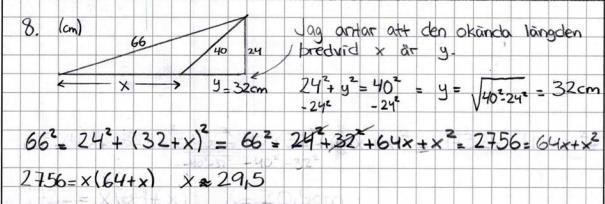 8. (cm)
66
40
24
x
y=32cm
Jag antar att den okända längden
bredvid x är y.
24²+y²=40² = y= √40²-24² = 32cm
-24² -24²
66²= 24²+(32+x)² = 66²= 24²+32²+64x+x²= 2756=64x+x²
2756=x(64+x) x≈29,5